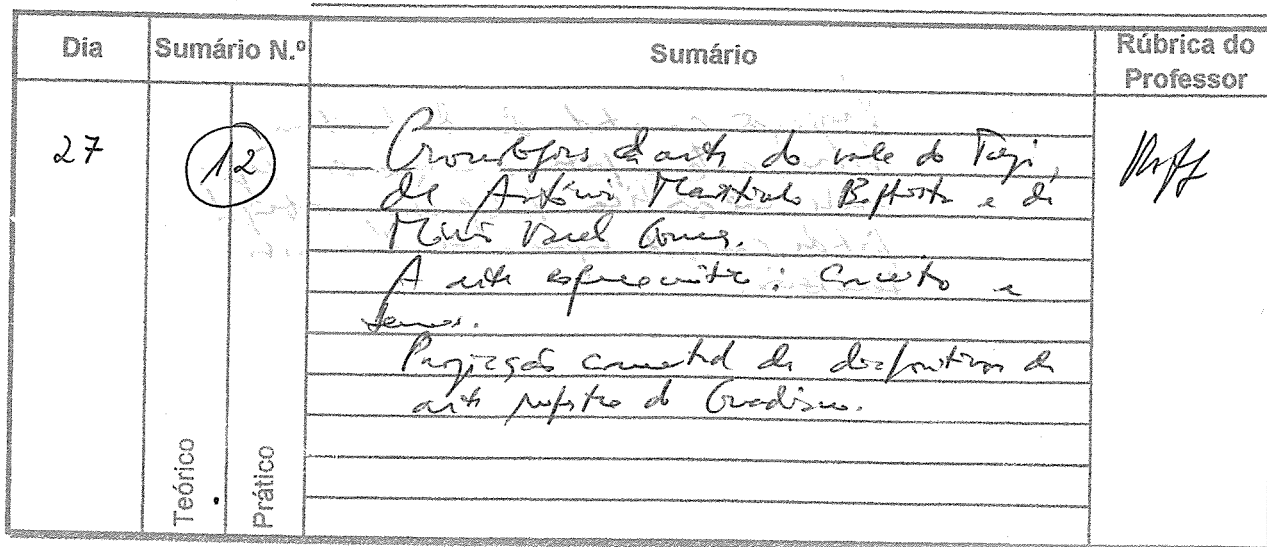 Dia
Sumário N.º
Sumário
Rúbrica do
Professor
27
12
Cronologias da arte do vale do Tejo,
de António Martinho Baptista e de
Mário Varela Gomes.
A arte esquemática: Conceito e
temas.
Projecção comentada de diapositivos de
arte rupestre do Guadiana.
Teórico
Prático